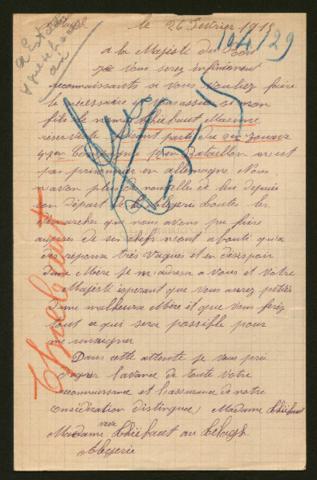 le 26 Fevrier 1915
104/29
a la Majesté du
Je Vous serez infiniment
reconnaissante si vous vouliez faire
le nécessaire pour
fils le nommé Thiébaut Maxime
réserviste faisant partie du 2e zouaves
4e 1er Bataillon est
pas prisonnier en allemagne Nous
n'avon plus de nouvelles de lui depuis
son départ de toutes les
recherches que nous avons pu faire
auprès de ses chefs n'ont aboutit qu'a
des réponses très vagues et en désespoir
d'une Mère je m'adresse a Vous et Votre
Majesté espérant que vous aurez pitiées
d'une malheureuse Mère et que vous ferez
tout ce qui sera possible pour
me renseigner
Dans cette attente je vous prie
d'agréer l'avance de toute Votre
reconnaissance et l'assurance de notre
considération distinguée Madame Thiébaut
Madame Thiébaut au
Algerie
Thiébaut